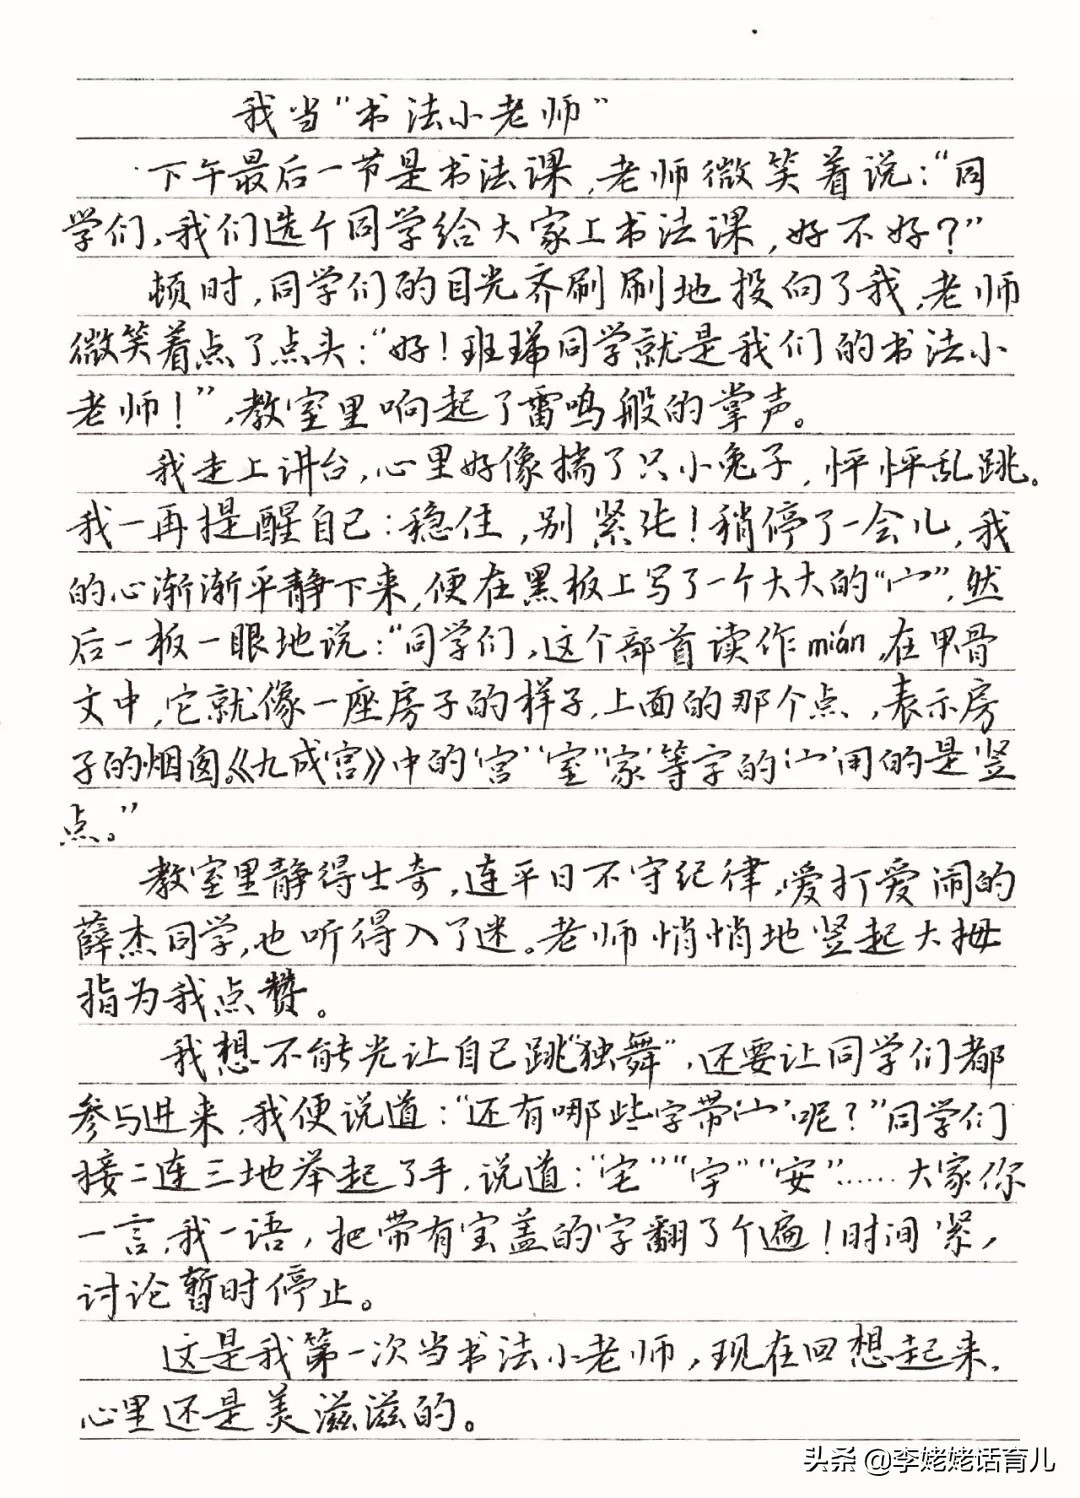 我当“书法小老师”
下午最后一节是书法课,老师微笑着说:“同
学们,我们选个同学给大家上书法课,好不好?”
顿时,同学们的目光齐刷刷地投向了我,老师
微笑着点了点头:“好!班瑞同学就是我们的书法小
老师!”,教室里响起了雷鸣般的掌声。
我走上讲台,心里好像揣了只小兔子,怦怦乱跳。
我一再提醒自己:稳住,别紧张!稍停了一会儿,我
的心渐渐平静下来,便在黑板上写了一个大大的“宀”,然
后一板一眼地说:“同学们,这个部首读作mián,在甲骨
文中,它就像一座房子的样子,上面的那个点,表示房
子的烟囱。《九成宫》中的‘宫’‘室’‘家’等字的‘宀’用的是竖
点。”
教室里静得出奇,连平日不守纪律,爱打爱闹的
薛杰同学,也听得入了迷。老师悄悄地竖起大拇
指为我点赞。
我想不能光让自己跳“独舞”,还要让同学们都
参与进来,我便说道:“还有哪些字带‘宀’呢?”同学们
接二连三地举起了手,说道:“宅”“字”“安”……大家你
一言,我一语,把带有宝盖的字翻了个遍!时间紧,
讨论暂时停止。
这是我第一次当书法小老师,现在回想起来,
心里还是美滋滋的。
头条 @李姥姥话育儿